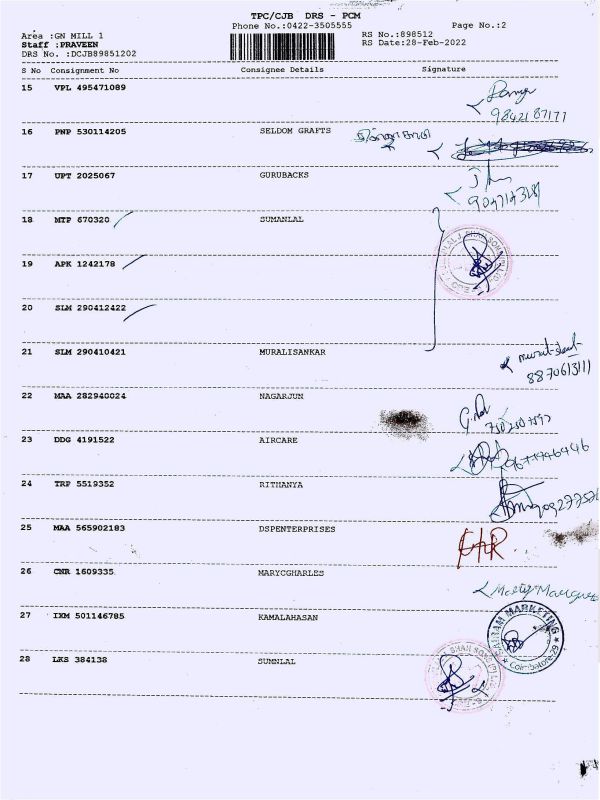 TPC/CJB DRS - PCM
Phone No.:0422-3505555 Page No.:2
Area :GN MILL 1 RS No.:898512
Staff :PRAVEEN RS Date:28-Feb-2022
DRS No. :DCJB89851202
S No Consignment No Consignee Details Signature
15 VPL 495471089
9842187177
16 PNP 530114205 SELDOM GRAFTS
17 UPT 2025067 GURUBACKS
18 MTP 670320 SUMANLAL
19 APK 1242178
20 SLM 290412422
21 SLM 290410421 MURALISANKAR
8870613111
22 MAA 282940024 NAGARJUN
23 DDG 4191522 AIRCARE
24 TRP 5519352 RITHANYA
25 MAA 565902183 DSPENTERPRISES
26 CNR 1609335 MARYCGHARLES
27 IXM 501146785 KAMALAHASAN
SAIRAM MARKETING
Coimbatore-29
28 LKS 384138 SUMNLAL